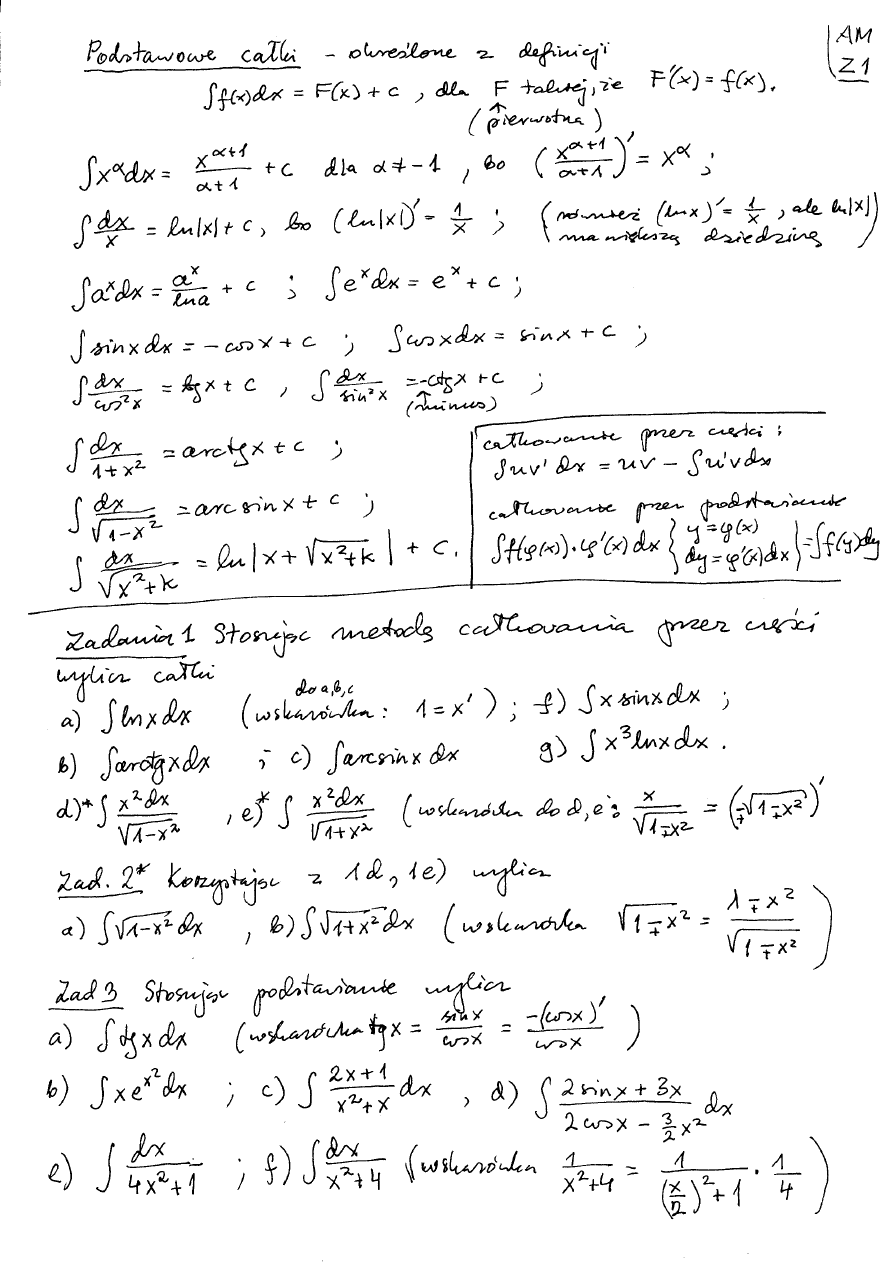 Podstawowe całki – określone z definicji
AM
Z1
∫f(x)dx = F(x) + c , dla F takiej, że F'(x) = f(x).
(pierwotna)
∫x^α dx = x^(α+1)/(α+1) + c dla α ≠ -1 , bo (x^(α+1)/(α+1))' = x^α ;
∫dx/x = ln|x| + c, bo (ln|x|)' = 1/x ; (również (lnx)' = 1/x , ale ln|x| ma większą dziedzinę)
∫a^x dx = a^x/lna + c ; ∫e^x dx = e^x + c ;
∫sinxdx = -cosx + c ; ∫cosxdx = sinx + c ;
∫dx/cos²x = tgx + c , ∫dx/sin²x = -ctgx + c ;
(minus)
∫dx/(1+x²) = arctgx + c ;
∫dx/√(1-x²) = arcsinx + c ;
∫dx/√(x²+k) = ln|x + √(x²+k)| + c.
całkowanie przez części :
∫uv' dx = uv - ∫u'vdx
całkowanie przez podstawianie
∫f(φ(x))·φ'(x)dx {y = φ(x) dy = φ'(x)dx} = ∫f(y)dy
Zadania 1 Stosując metodę całkowania przez części
wylicz całki
a) ∫lnxdx (wskazówka do a,b,c : 1 = x') ; f) ∫x sinx dx ;
b) ∫arctgxdx ; c) ∫arcsinx dx g) ∫x³lnxdx .
d)* ∫x²dx/√(1-x²) , e)* ∫x²dx/√(1+x²) (wskazówka do d, e : x/√(1∓x²) = (∓√(1∓x²))'
Zad. 2* Korzystając z 1d, 1e) wylicz
a) ∫√(1-x²) dx , b) ∫√(1+x²) dx (wskazówka √(1∓x²) = (1∓x²)/√(1∓x²))
Zad 3 Stosując podstawianie wylicz
a) ∫tgxdx (wskazówka tgx = sinx/cosx = -(cosx)'/cosx)
b) ∫xe^(x²)dx ; c) ∫(2x+1)/(x²+x) dx , d) ∫(2sinx + 3x)/(2cosx - 3/2 x²) dx
e) ∫dx/(4x²+1) ; f) ∫dx/(x²+4) (wskazówka 1/(x²+4) = 1/((x/2)²+1) · 1/4)